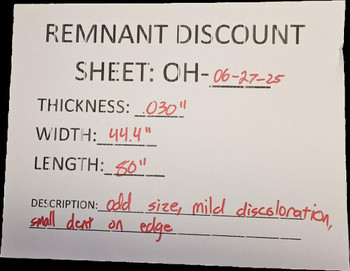 REMNANT DISCOUNT
SHEET: OH-06-27-25
THICKNESS: .030"
WIDTH: 44.4"
LENGTH: 80"
DESCRIPTION: odd size, mild discoloration,
small dent on edge